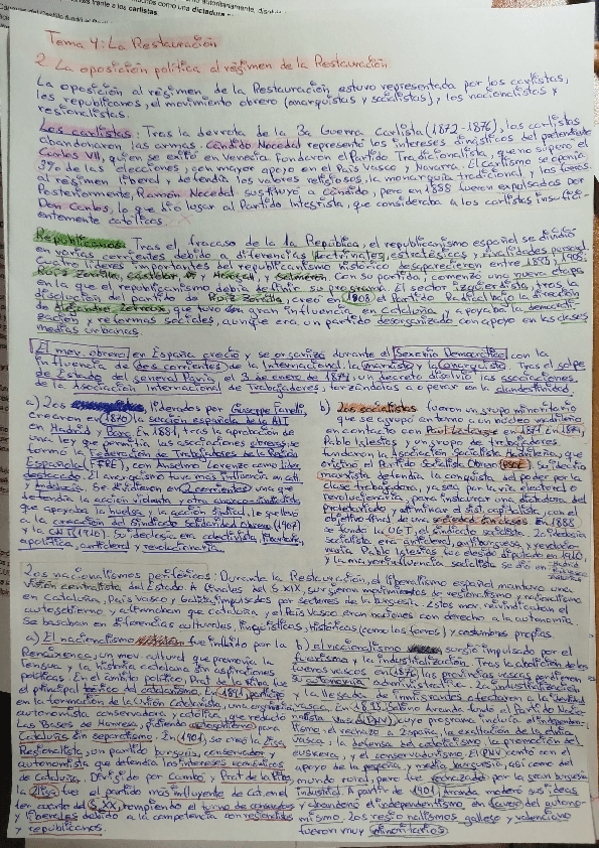 frente a los carlistas
Tema 4: La Restauración
2. La oposición política al régimen de la Restauración
La oposición al régimen de la Restauración estuvo representada por los carlistas,
los republicanos, el movimiento obrero (anarquistas y socialistas) y los nacionalistas y
regionalistas.
Los carlistas: Tras la derrota de la 3a Guerra Carlista (1872-1876), los carlistas
abandonaron las armas. Cándido Nocedal representó los intereses dinásticos del pretendiente
Carlos VII, quien se exilió en Venecia. Fundaron el Partido Tradicionalista, que no superó el
3% de las elecciones, con mayor apoyo en el País Vasco y Navarra. El carlismo se oponía
al régimen liberal y defendía los valores religiosos, la monarquía tradicional y los fueros.
Posteriormente, Ramón Nocedal sustituyó a Cándido, pero en 1888 fueron expulsados por
Don Carlos, lo que dio lugar al Partido Integrista, que consideraba a los carlistas insufici-
entemente católicos.
Republicanos: Tras el fracaso de la 1a República, el republicanismo español se dividió
en varias corrientes debido a diferencias doctrinales, estratégicas y rivalidades personal.
Cuatro líderes importantes del republicanismo histórico desaparecieron entre 1895 y 1908:
Ruiz Zorrilla, Castelar, Pi y Margall y Salmerón. Con su partida, comenzó una nueva etapa
en la que el republicanismo debía definir su programa. El sector izquierdista, tras la
disolución del partido de Ruiz Zorrilla, creó en 1908 el Partido Radical bajo la dirección
de Alejandro Lerroux, que tuvo gran influencia en Cataluña y apoyaba la democrati-
zación y reformas sociales, aunque era un partido desorganizado con apoyo en las clases
medias urbanas.
El mov. obrero en España creció y se organizó durante el Sexenio Democrático con la
influencia de dos corrientes de la Internacional: la marxista y la anarquista. Tras el golpe
de Estado del general Pavía, el 3 de enero de 1874, un decreto disolvió las asociaciones
de la Asociación Internacional de Trabajadores, forzándolas a operar en la clandestinidad.
a) Los liderados por Giuseppe Fanelli,
crearon en 1870 la sección española de la AIT
en Madrid y Barc. En 1881, tras la aprobación de
una ley que permitía las asociaciones obreras, se
formó la Federación de Trabajadores de la Región
Española (FTRE), con Anselmo Lorenzo como líder
destacado. El anarquismo tuvo más influencia en Cat.
y Andalucía. Se dividieron en 2 corrientes: una que
defendía la acción violenta y otra anarcosindicalista
que apoyaba la huelga y la acción sindical. Le llevó
a la creación del Sindicato Solidaridad Obrera (1907)
y la CNT (1910). Su ideología era colectivista, libertaria,
apolítica, anticlerical y revolucionaria.
b) Los socialistas fueron un grupo minoritario
que se agrupó en torno a un núcleo madrileño
en contacto con Paul Lafargue en 1871 a 1881,
Pablo Iglesias y un grupo de trabajadores
fundaron la Asociación Socialista Madrileña, que
originó el Partido Socialista Obrero (PSOE). Su ideario
marxista defendía la conquista del poder por la
clase trabajadora, ya sea por vía electoral o
revolucionaria, para instaurar una dictadura del
proletariado y eliminar el sist. capitalista, con el
objetivo final de una sociedad sin clases. En 1888
se fundó la UGT, el sindicato socialista. La ideología
socialista era anticlerical, antiburguesa y revolucio-
naria. Pablo Iglesias fue elegido diputado en 1910
y la mayor influencia socialista se dio en Madrid
Los nacionalismos periféricos: Durante la Restauración, el liberalismo español mantuvo una
visión centralista del Estado. A finales del S.XIX, surgieron movimientos de regionalismo y nacionalismo
en Cataluña, País Vasco y Galicia, impulsados por sectores de la burguesía. Estos mov. reivindicaban el
autogobierno y afirmaban que Cataluña y el País Vasco eran naciones con derecho a la autonomía.
Se basaban en diferencias culturales, lingüísticas, históricas (como los fueros) y costumbres propias.
a) El nacionalismo fue influido por la
Renaixença, un mov. cultural que promovía la
lengua y la historia catalana sin aspiraciones
políticas. En el ámbito político, Prat de la Riba fue
el principal teórico del catalanismo. En 1891, participó
en la formación de la Unión Catalanista, una organización
autonomista conservadora y católica, que redactó
las Bases de Manresa, pidiendo autogobierno para
Cataluña sin separatismo. En 1901, se creó la Lliga
Regionalista, un partido burgués, conservador y
autonomista que defendía los intereses económicos
de Cataluña. Dirigido por Cambó y Prat de la Riba,
la Lliga fue el partido más influyente de Cat. en el
1er cuarto del S.XX, rompiendo el turno de conservadores
y liberales debido a la competencia con regionalistas
y republicanos.
b) El nacionalismo surgió impulsado por el
fuerismo y la industrialización. Tras la abolición de los
fueros vascos en 1876, las provincias vascas perdieron
su autonomía administrativa. La industrialización
y la llegada de inmigrantes afectaron a la identidad
vasca. En 1895, Sabino Arana fundó el Partido Nacio-
nalista Vasco (PNV), cuyo programa incluía el independen-
tismo, el rechazo a España, la exaltación de la etnia
vasca, la defensa del catolicismo, la promoción del
euskera, y el conservadurismo. El PNV contó con el
apoyo de la pequeña y media burguesía, así como del
mundo rural, pero fue rechazado por la gran burguesía
industrial. A partir de 1901, Arana moderó sus ideas
y abandonó el independentismo, en favor del autono-
mismo. Los regionalismos gallego y valenciano
fueron muy minoritarios.